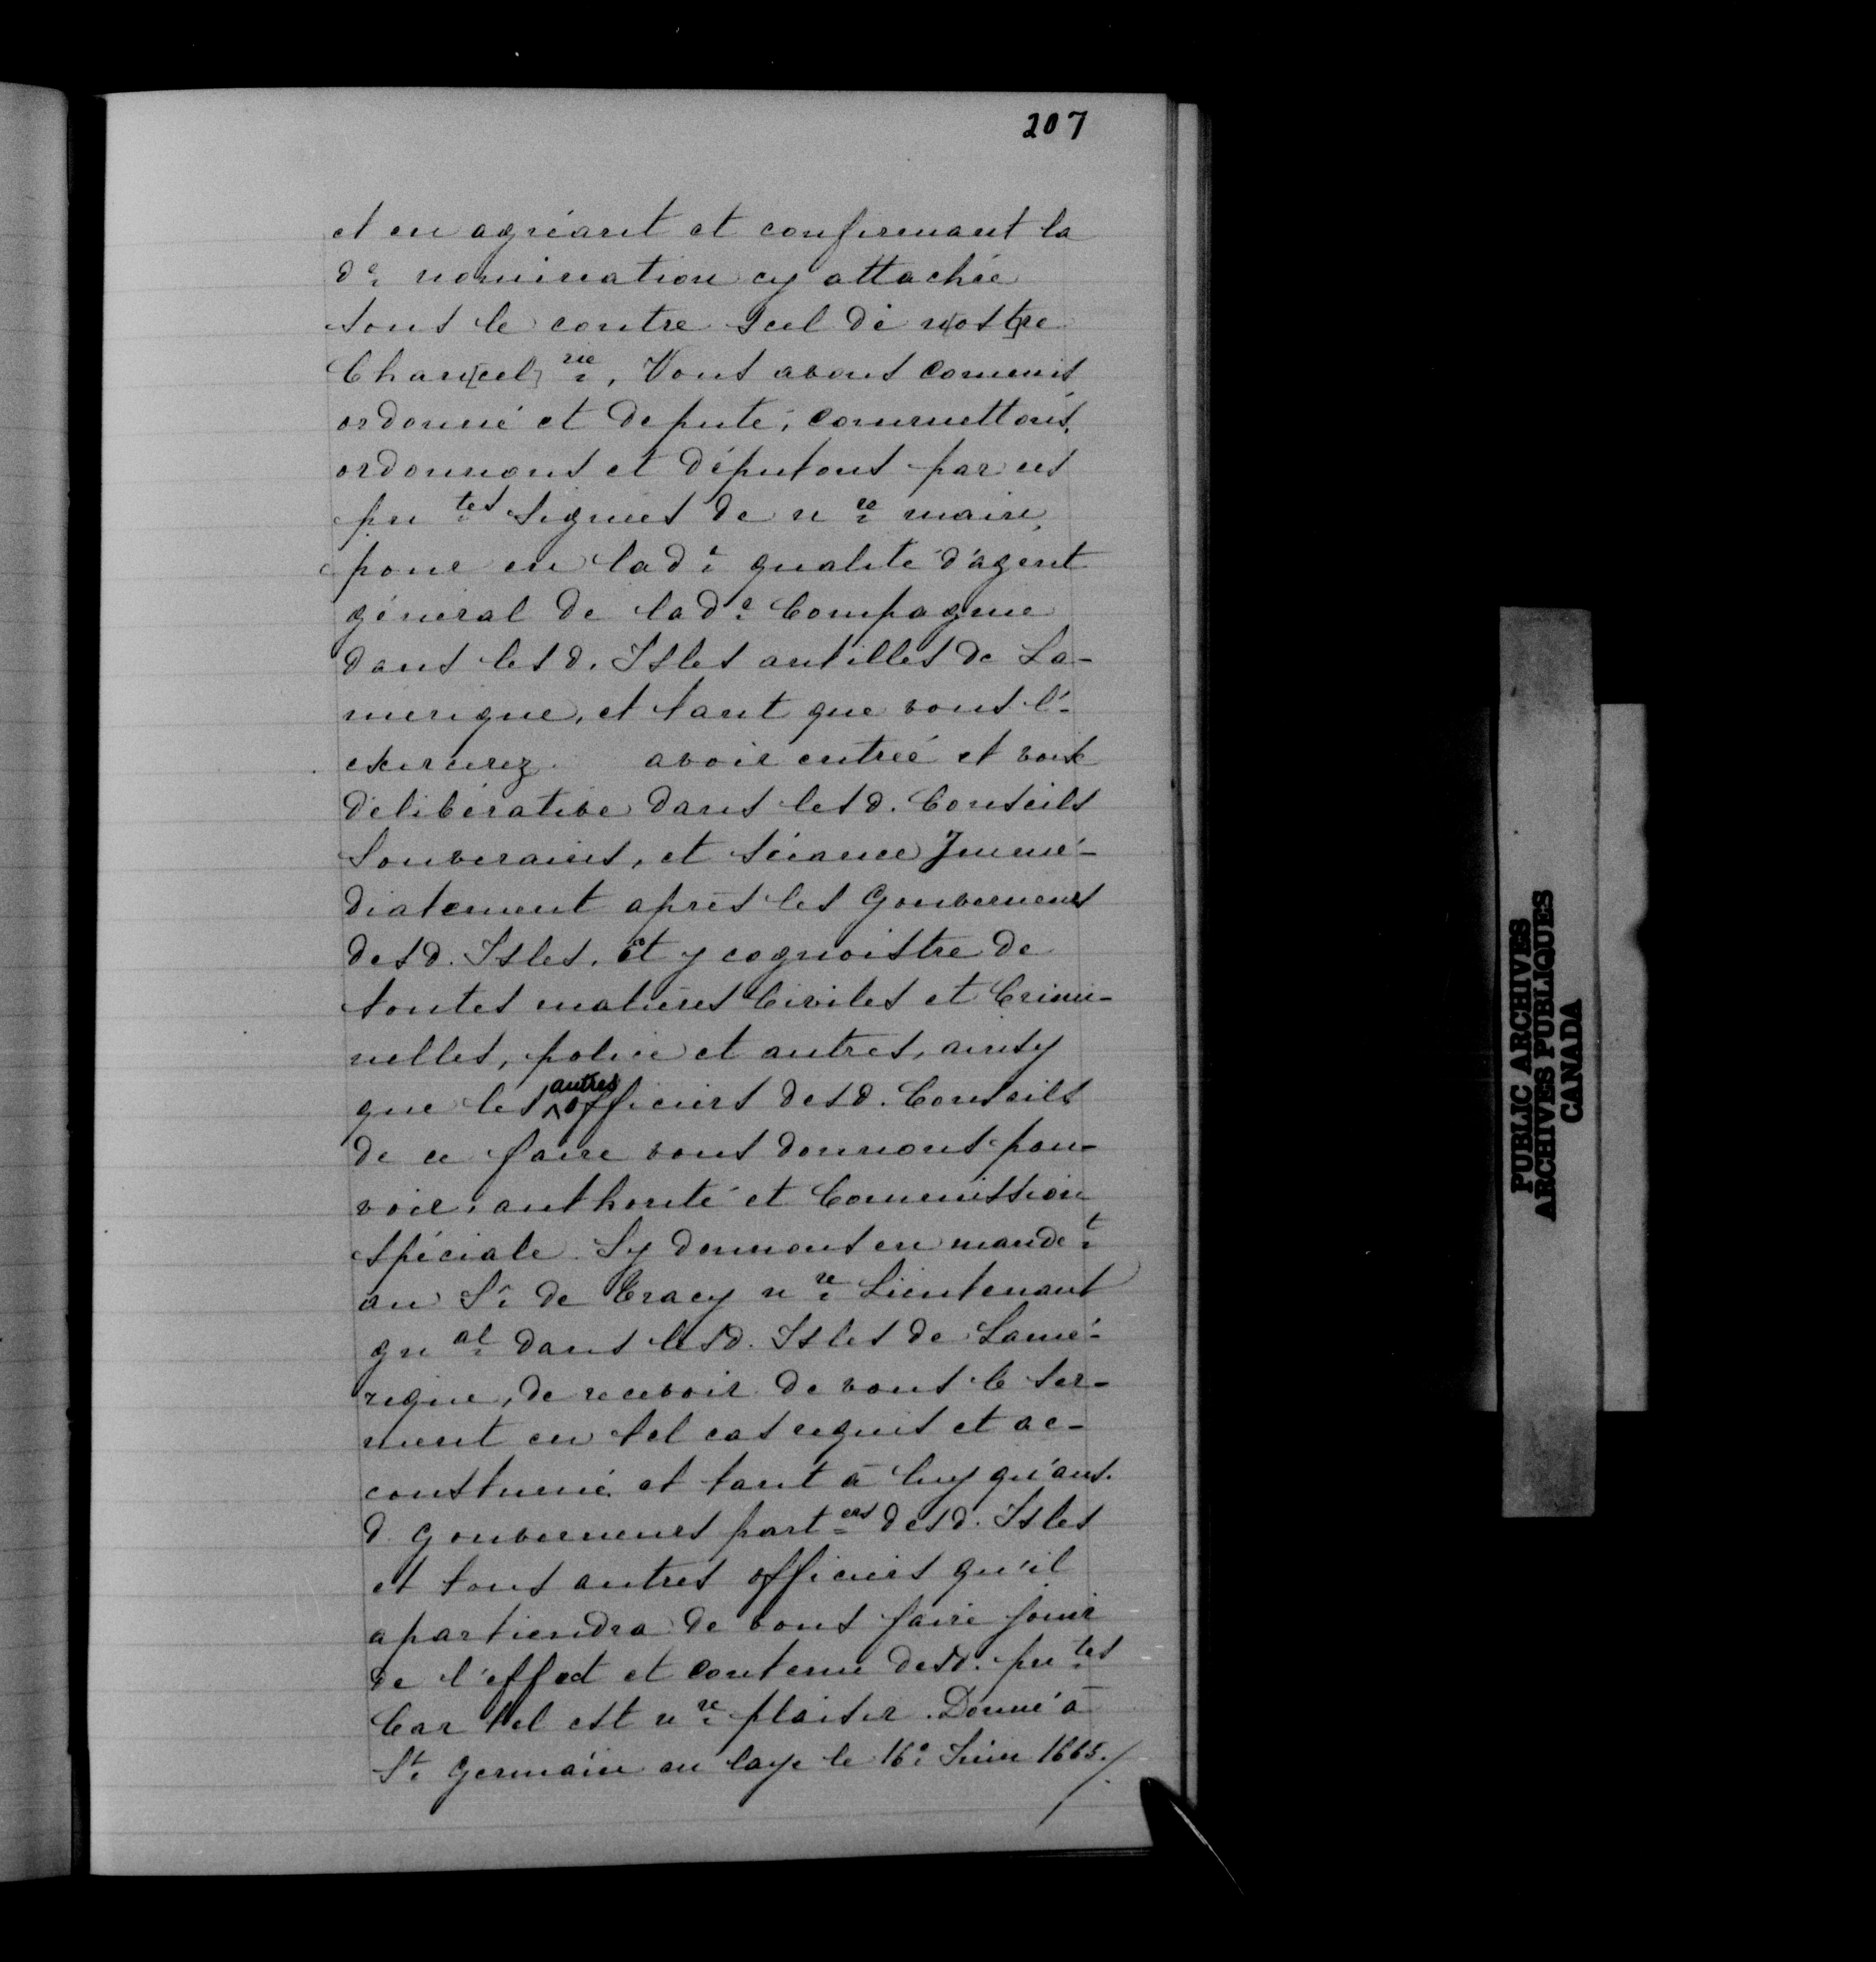 207
et en agréant et confirmant la
de nomination cy attachée
sous le contre scel de n[ost]re
Chan[cel]rie, Vous avons commis
ordonné et deputé, commettons,
ordonnons et députons par ces
pntes signées de nre main,
pour en lade qualité d'agent
général de lade Compagnie
dans lesd. Isles antilles de La-
mérique, et tant que vous l'-
exercerez avoir entrée et voix
délibérative dans lesd. Conseils
Souverains, et séance Immé-
diatement après les Gouverneurs
desd. Isles, et y cognoistre de
toutes matières Civiles et Crimi-
nelles, police et autres, ainsy
que les autres officiers desd. Conseils
de ce faire vous donnons pou-
voir, authorité et Commission
spéciale. Sy donnons en mandet
au Sr de Tracy nre Lieutenant
gnal dans lesd. Isles de Lamé-
rique, de recevoir de vous le ser-
ment en tel cas requis et ac-
coustumé, et tant à luy qu'aus.
d. Gouverneurs parters desd. Isles
et tous autres officiers qu'il
apartiendra de vous faire jouir
de l'effect et contenu desd. pntes
Car tel est nre plaisir. Donné à
St Germain en laye le 16e Juin 1665./
PUBLIC ARCHIVES
ARCHIVES PUBLIQUES
CANADA